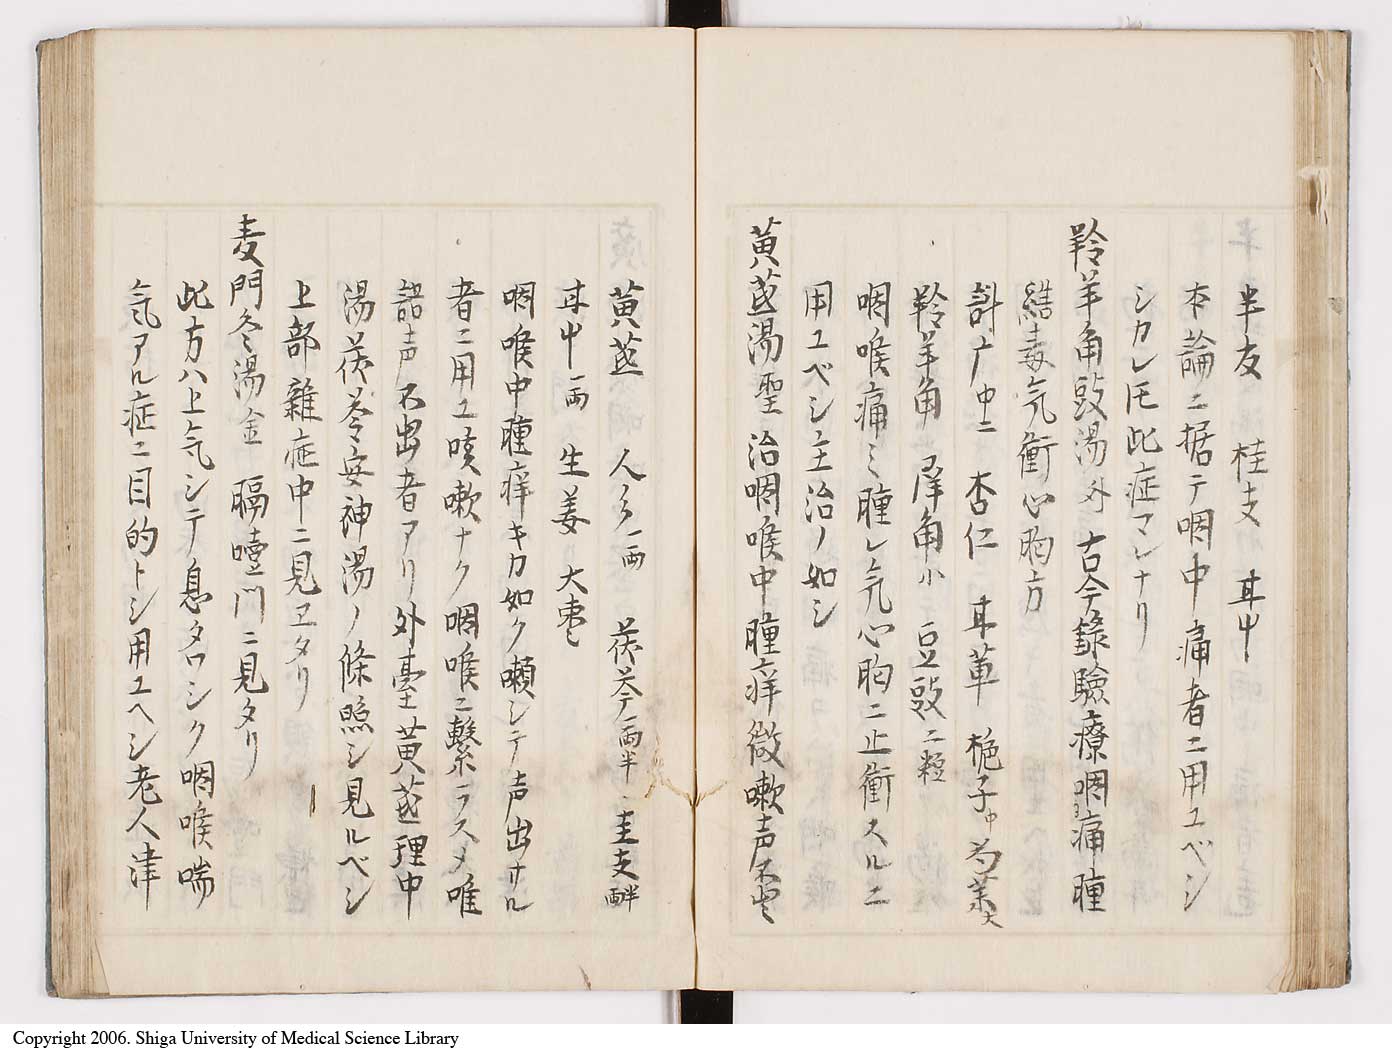 半夏 桂支 耳屮
本論ニ据テ咽中痛者ニ用ユベシ
シカレ𪜈此症マレナリ
羚羊角豉湯外 古今錄驗療咽痛腫
結毒気衝心胸方
羚羊角 犀角小 豆豉二
咽喉痛ミ腫レ気心胸ニ上衝スルニ
用ユベシ主治ノ如シ
黄芪湯聖 治咽喉中腫痒微嗽声不出
黄芪 人参一両 茯苓一両半 桂支半両
耳屮一両 生姜 大棗
咽喉中腫痒キカ如ク嗽シテ声出サル
者ニ用ユ咳嗽ナク咽喉ニ繫ラスメ唯
諸声不出者アリ外臺黄芪理中
湯茯苓安神湯ノ條照シ見ルベシ
上部雜症中ニ見ヱタリ
麦門冬湯金 膈噎門ニ見タリ
此方ハ上気シテ息タワシク咽喉喘
気アル症ニ目的トシ用ユヘシ老人津
Copyright 2006. Shiga University of Medical Science Library